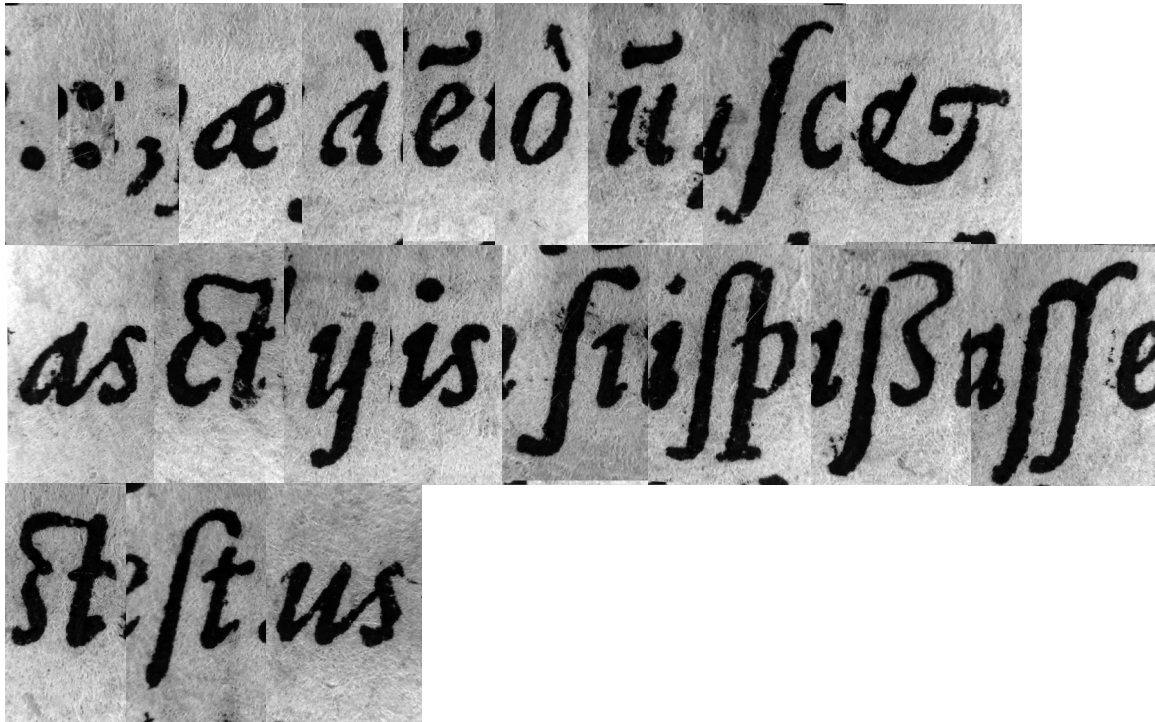 . : ; æ à ẽ ò ũ ſc &
as ct ij is ſi ſp ſs ſſ
st ſt us